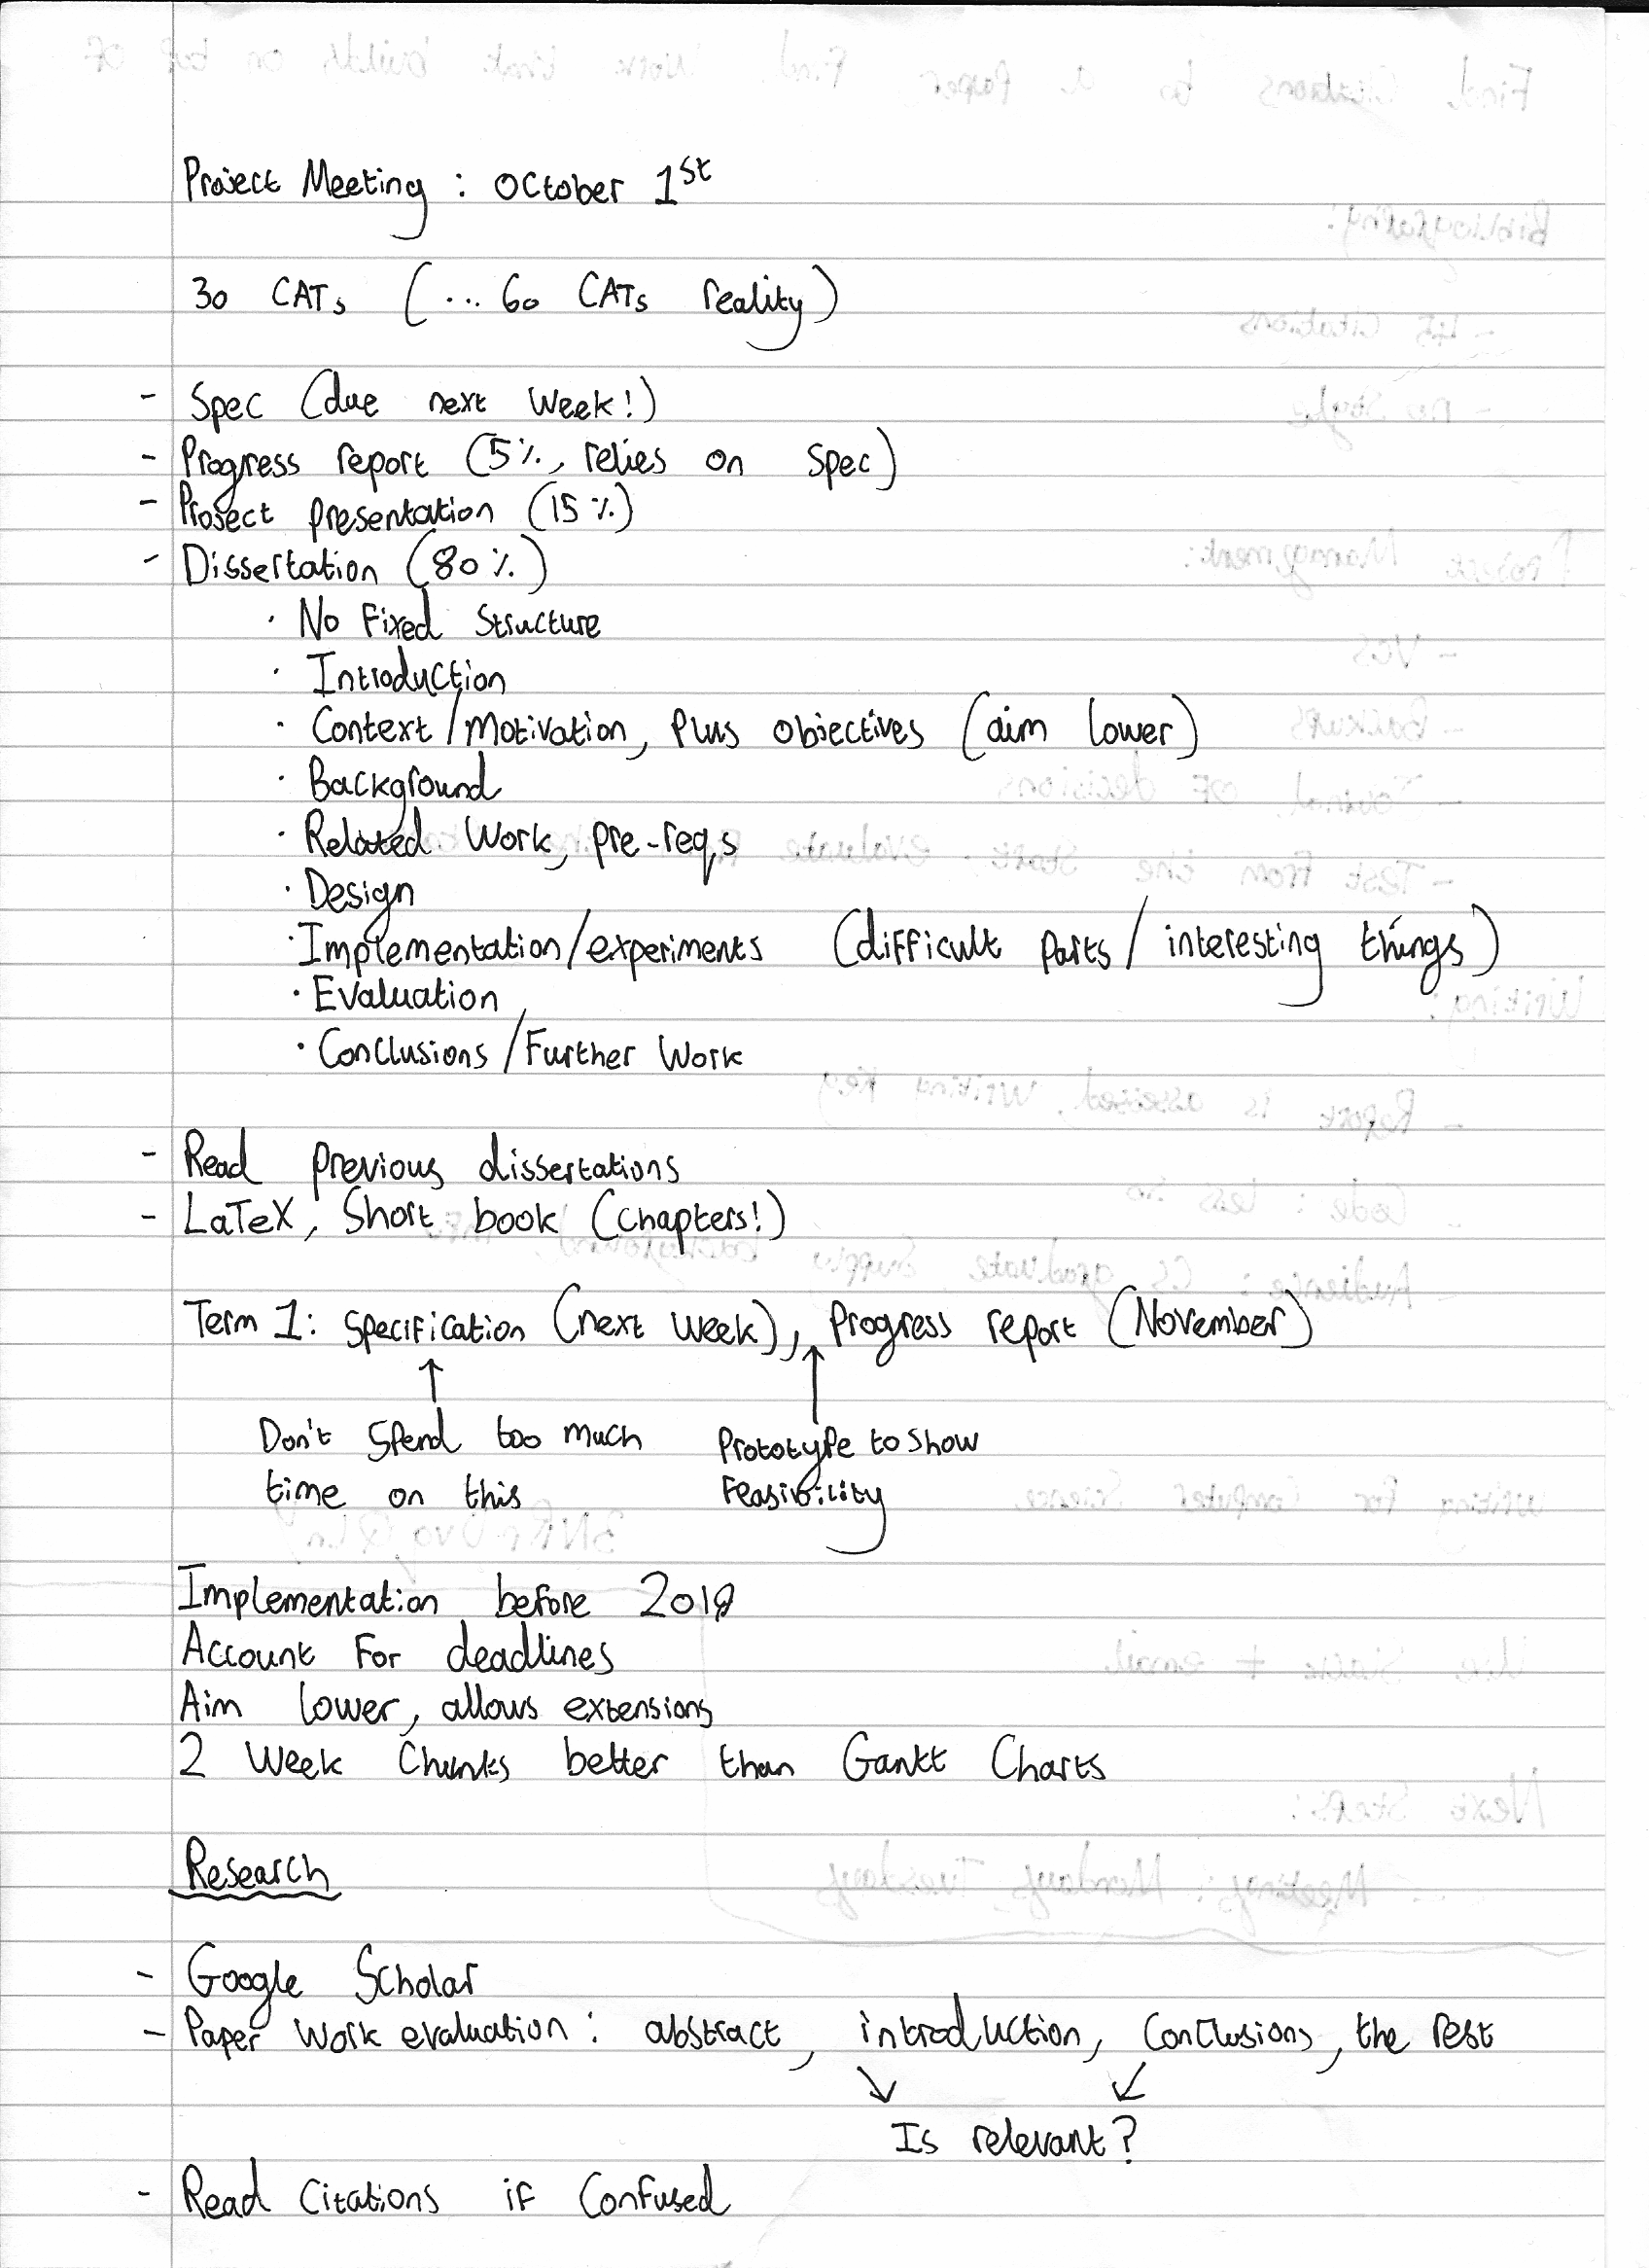 Project Meeting : October 1st
30 CATs (... 60 CATs reality)
- Spec (due next week!)
- Progress report (5%, relies on spec)
- Project presentation (15%)
- Dissertation (80%)
· No Fixed Structure
· Introduction
· Context/motivation, Plus objectives (aim lower)
· Background
· Related Work, pre-reqs
· Design
· Implementation/experiments (difficult parts/interesting things)
· Evaluation
· Conclusions/Further Work
- Read previous dissertations
- LaTeX, Short book (chapters!)
Term 1: Specification (next week), Progress report (November)
Don't spend too much Prototype to show
time on this Feasibility
Implementation before
Account For deadlines
Aim lower, allows extensions
2 Week Chunks better than Gantt Charts
Research
- Google Scholar
- Paper Work evaluation: abstract, introduction, Conclusions, the rest
Is relevant?
- Read Citations if Confused